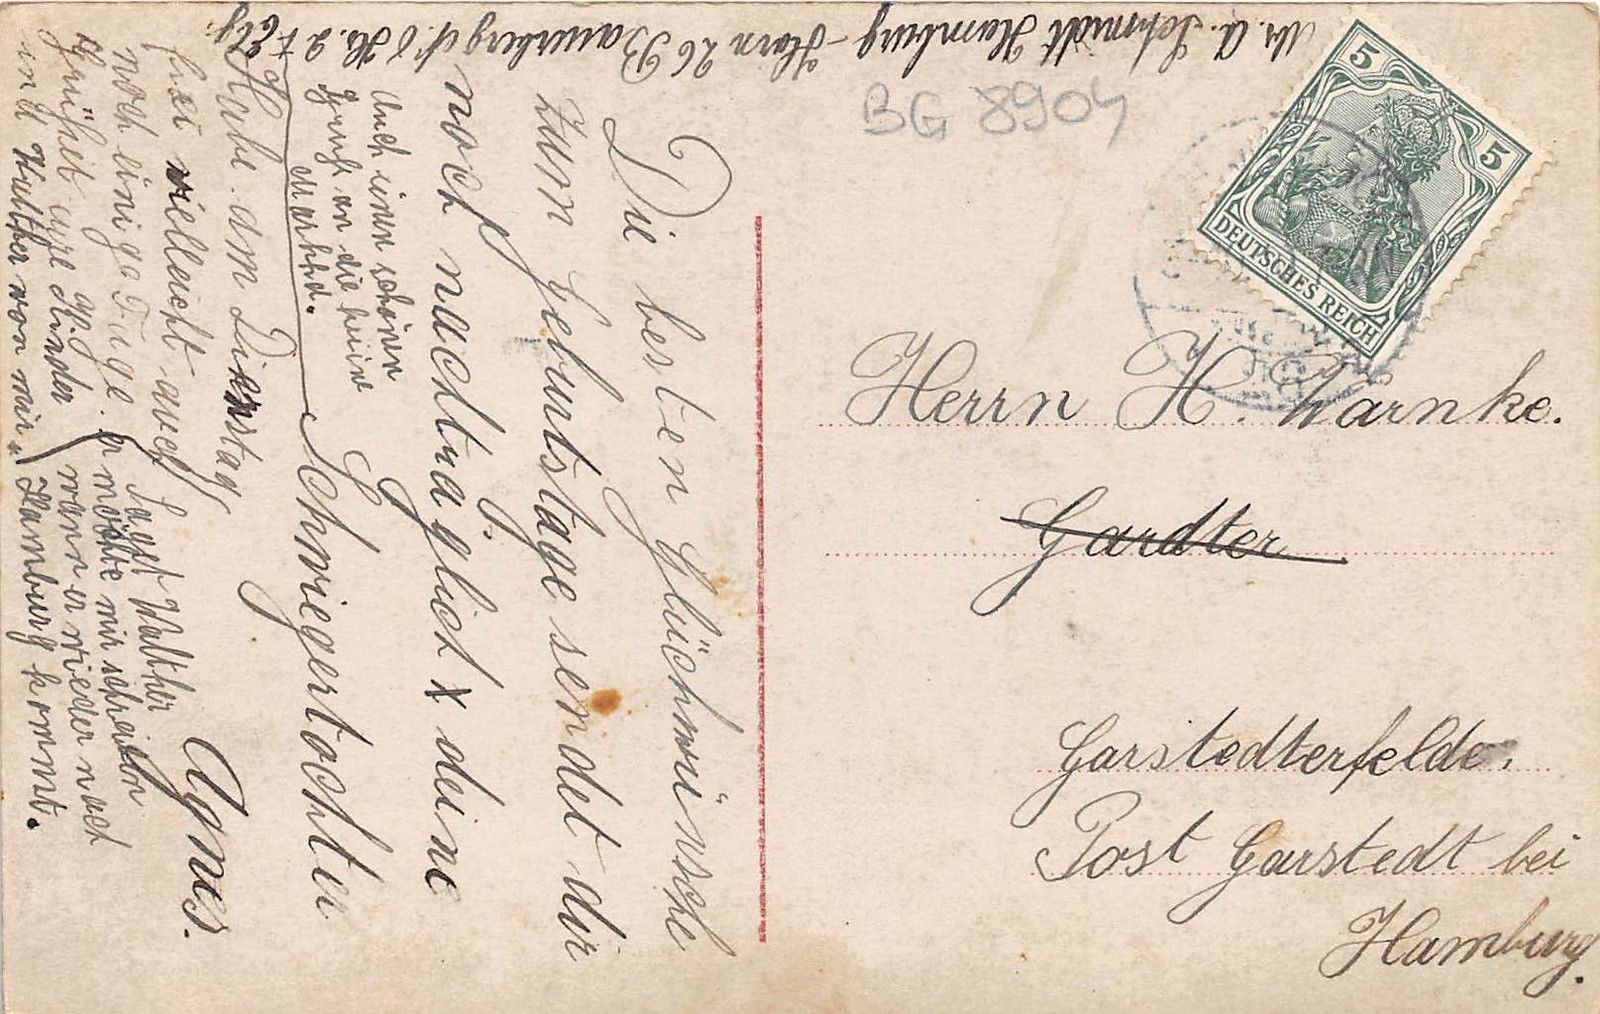 Abs. A. Schmidt Hamburg-Horn 26 Bauerberg
BG 8904
5 5
DEUTSCHES REICH
Herrn H. Warnke.
Gardter
Garstedterfelde.
Post Garstedt bei
Hamburg.
Die besten Glückwünsche
zum Geburtstage sendet dir
noch nachträglich deine
Schwiegertochter
Agnes.
Auch einen schönen
an die kleine
Martha.
Habe am Dienstag
frei vielleicht auch
noch einige Tage.
Grüßet eure Kinder
und Walther von mir.
Saget Walther
er möchte mir schreiben
wann er wieder nach
Hamburg kommt.